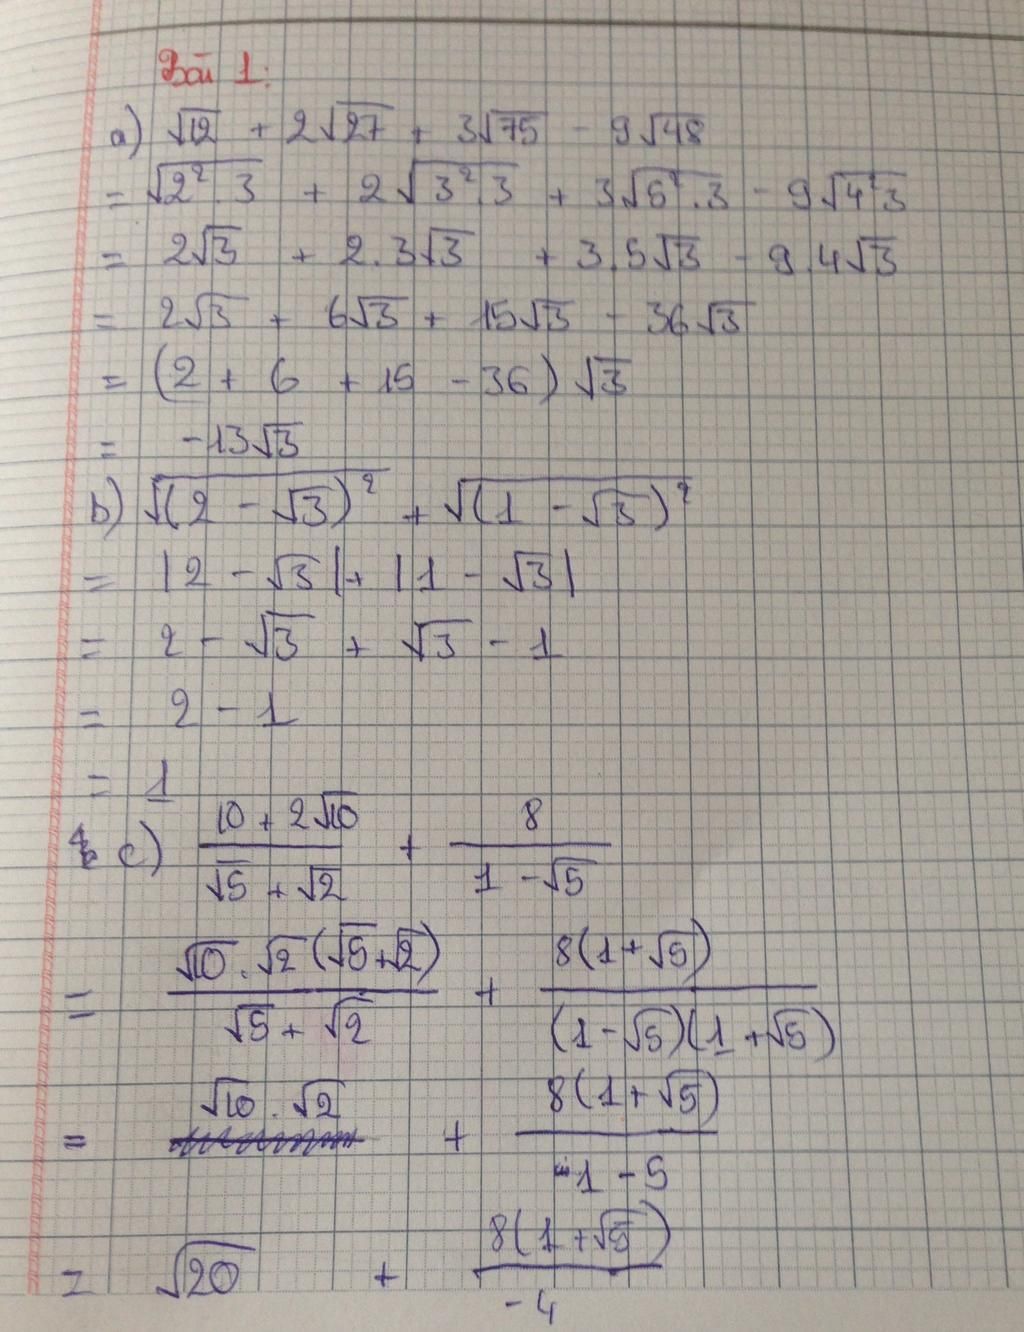 Bài 1:
a) √12 + 2√27 + 3√75 - 9√48
= √(2² . 3) + 2√(3² . 3) + 3√(5² . 3) - 9√(4² 3)
= 2√3 + 2.3√3 + 3.5√3 - 9.4√3
= 2√3 + 6√3 + 15√3 - 36√3
= (2 + 6 + 15 - 36) √3
= -13√3
b) √((2 - √3)²) + √((1 - √3)²)
= |2 - √3| + |1 - √3|
= 2 - √3 + √3 - 1
= 2 - 1
= 1
c) (10 + 2√10)/(√5 + √2) + 8/(1 - √5)
= (√10 . √2 (√5 + √2))/(√5 + √2) + (8(1 + √5))/((1 - √5)(1 + √5))
= √10 . √2 + (8(1 + √5))/(1 - 5)
= √20 + (8(1 + √5))/(-4)